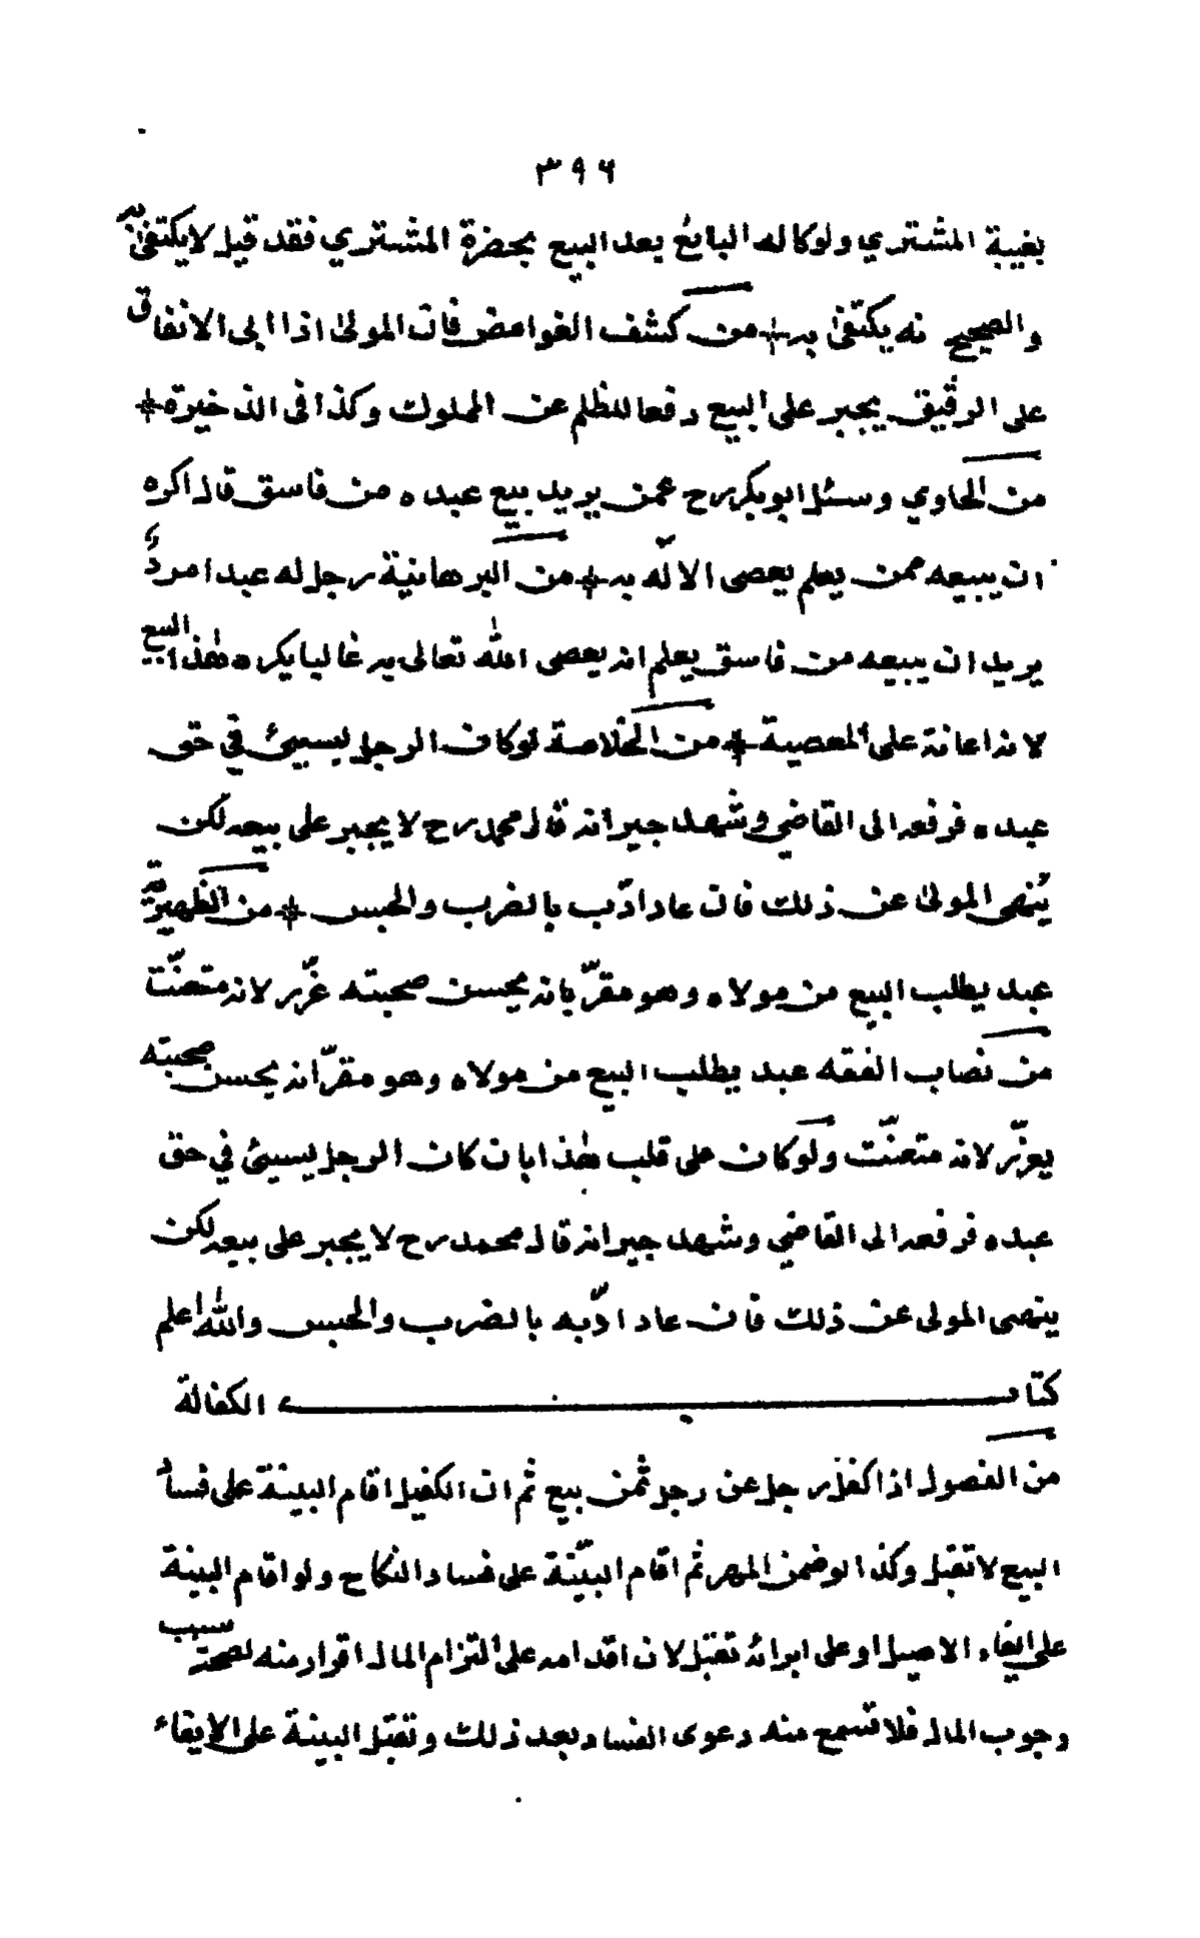 ٣٩٦
بغيبة المشتري ولو كاله البايع بعد البيع بحضرة المشتري فقد قيل لا يكتفى به
والصحيح نه يكتفى به + من كشف الغوامض فان المولى اذا ابى الانفاق
على الرقيق يجبر على البيع رفعا للظلم عن المملوك وكذا فى الذخيرة +
من الحاوي وسئل ابو بكر رح عمن يريد بيع عبده من فاسق قال اكره
ان يبيعه ممن يعلم يعصى الاله به + من البرهانية رجل له عبد امرد
يريد ان يبيعه من فاسق يعلم انه يعصى الله تعالى به غالبا يكره هذا البيع
لانه اعانة على المعصية + من الخلاصة لو كان الرجل يسيئ في حق
عبده فرفعه الى القاضي وشهد جيرانه قال محمد رح لا يجبر على بيعه لكن
يُنهى المولى عن ذلك فان عاد ادّب بالضرب والحبس + من الظهيرية
عبد يطلب البيع من مولاه وهو مقرّ بانه يحسن صحبته عزّر لانه متعنّت
من نصاب الفقه عبد يطلب البيع من مولاه وهو مقرّ انه يحسن صحبته
يعزّر لانه متعنّت ولو كان على قلب هذا بان كان الرجل يسيئ في حق
عبده فرفعه الى القاضي وشهد جيرانه قال محمد رح لا يجبر على بيعه لكن
ينهى المولى عن ذلك فان عاد ادّبه بالضرب والحبس والله اعلم
كتاب الكفالة
من الفصول اذا كفل رجل عن رجل ثمن بيع ثم ان الكفيل اقام البينة على فساد
البيع لا تقبل وكذا لو ضمن المهر ثم اقام البيّنة على فساد النكاح ولو اقام البينة
على ايفاء الاصيل او على ابرائه تقبل لان اقدامه على التزام المال اقرار منه لصحة سبب
وجوب المال فلا تسمع منه دعوى الفساد بعد ذلك وتقبل البينة على الايفاء